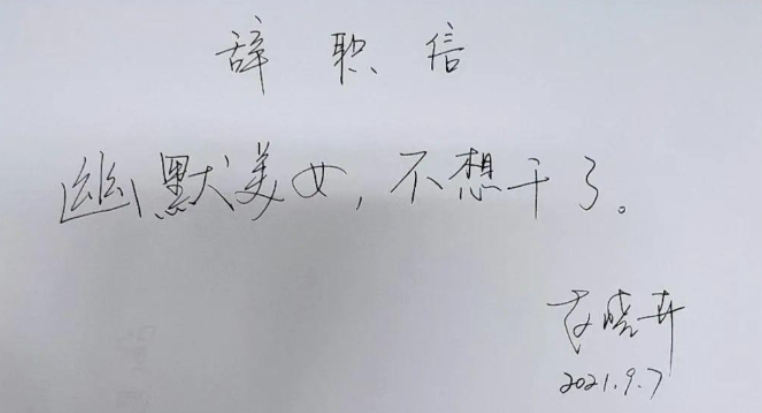 辞职信
幽默美女,不想干了。
袁晓卉
2021.9.7